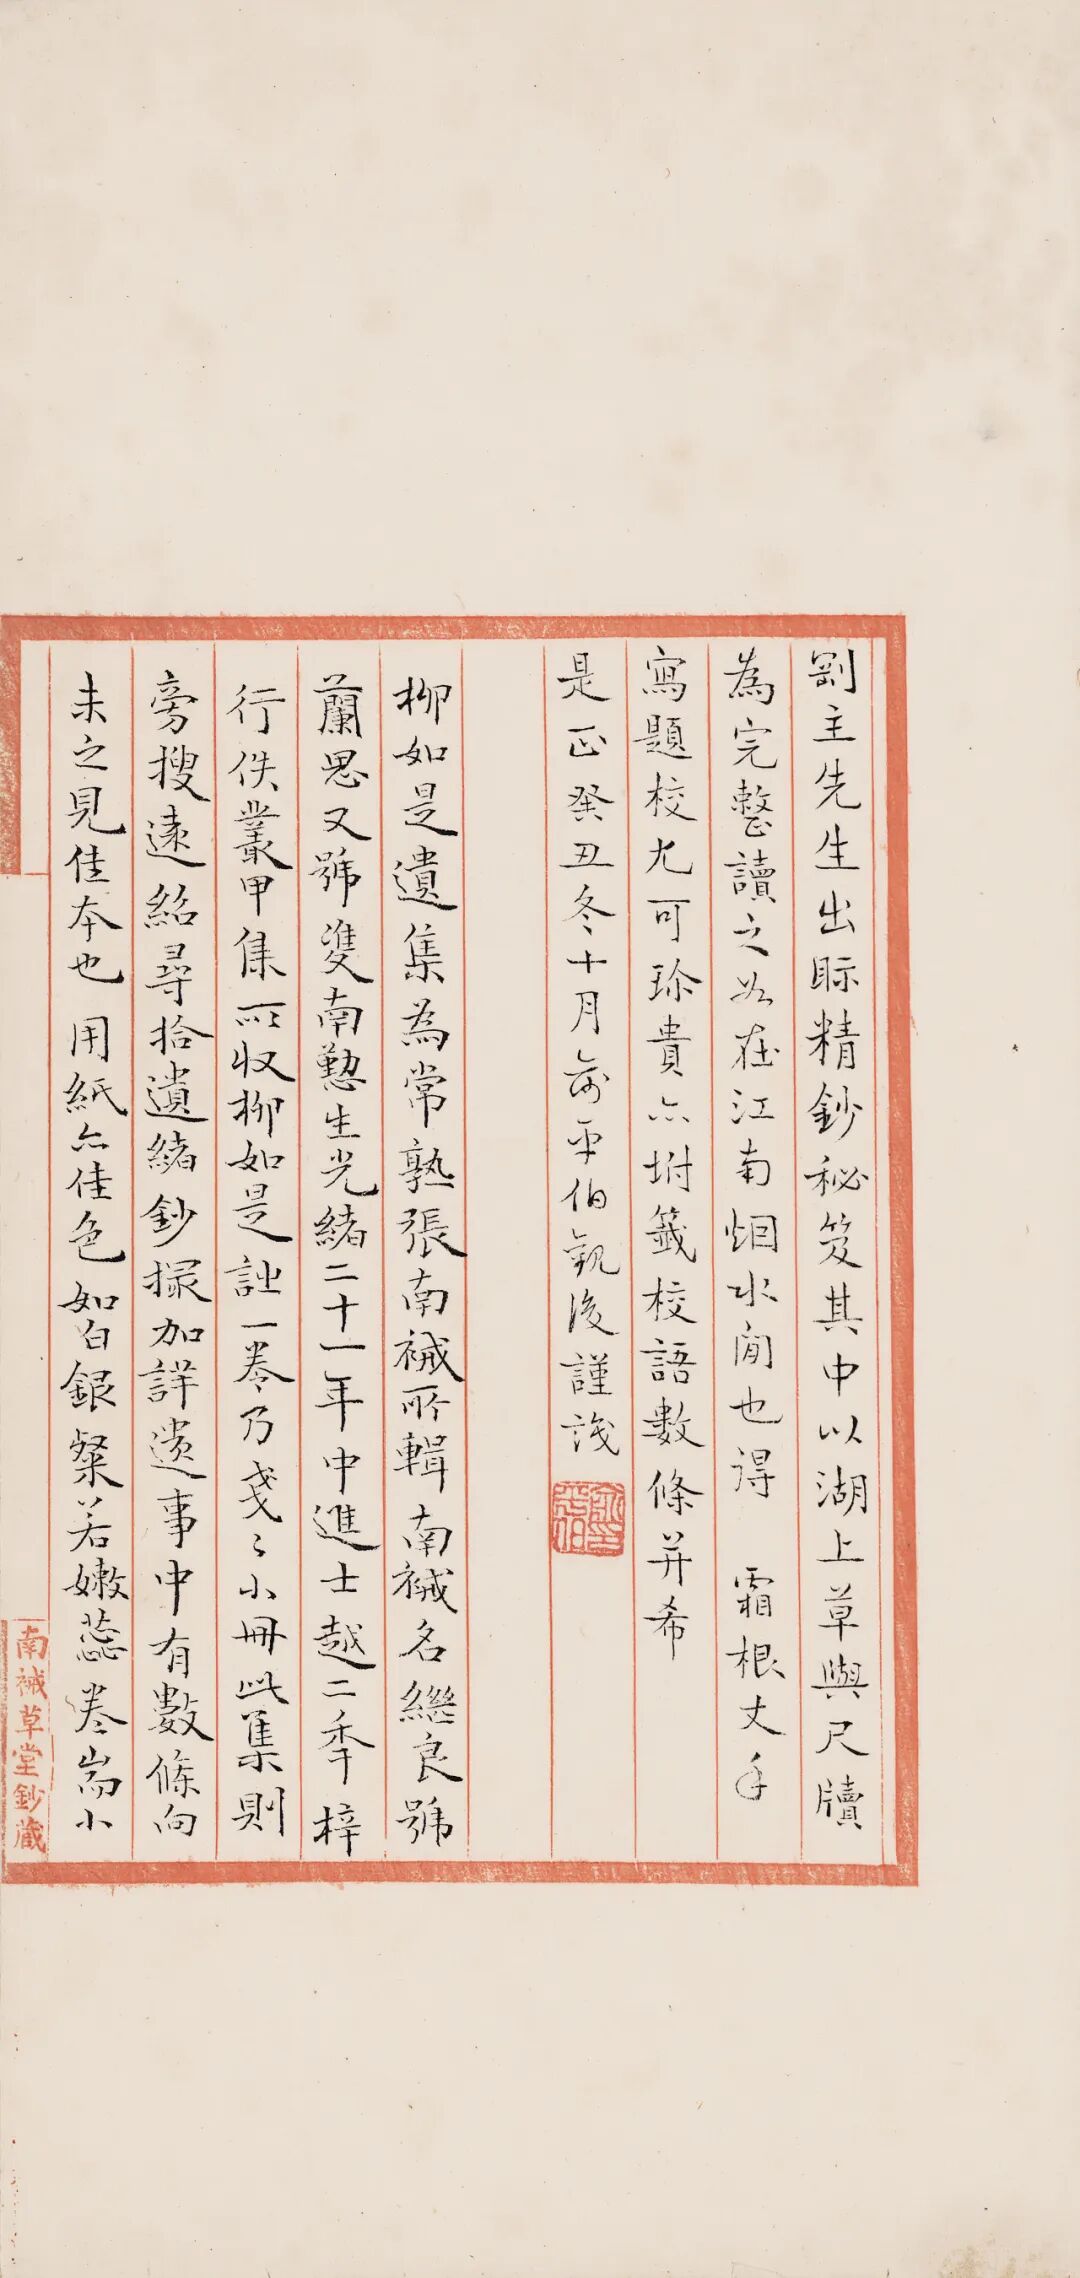 剛主先生出眎精鈔秘笈其中以湖上草與尺牘
為完整讀之如在江南烟水間也得 霜根丈手
寫題校尤可珍貴亦坿籤校語數條并希
是正癸丑冬十月俞平伯觀後謹識
俞平伯
柳如是遺集為常熟張南祴所輯南祴名繼良號
蘭思又號雙南懃生光緒二十一年中進士越二年梓
行佚叢甲集所收柳如是詩一卷乃戔〻小冊此集則
旁搜遠紹尋拾遺緒鈔撮加詳遺事中有數條向
未之見佳本也用紙亦佳色如白銀粲若嫩蕊卷耑小
南祴草堂鈔藏